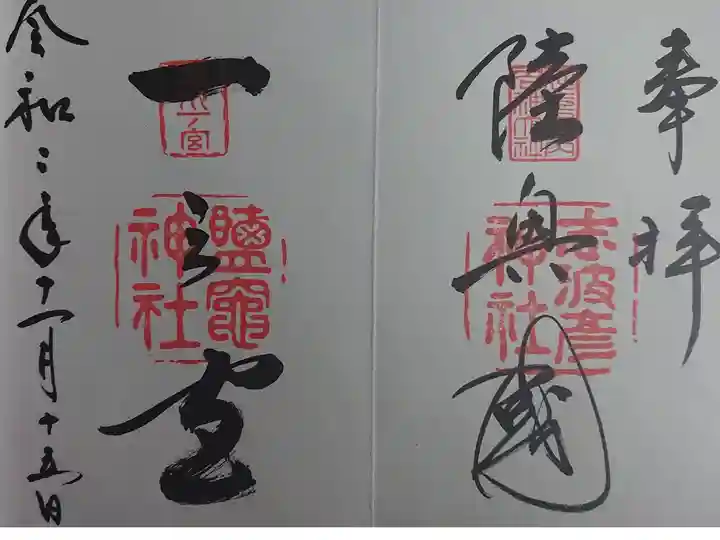 奉拝
陸奥國
志波彦
神社
一之宮
鹽竈
神社
令和二年十一月十五日